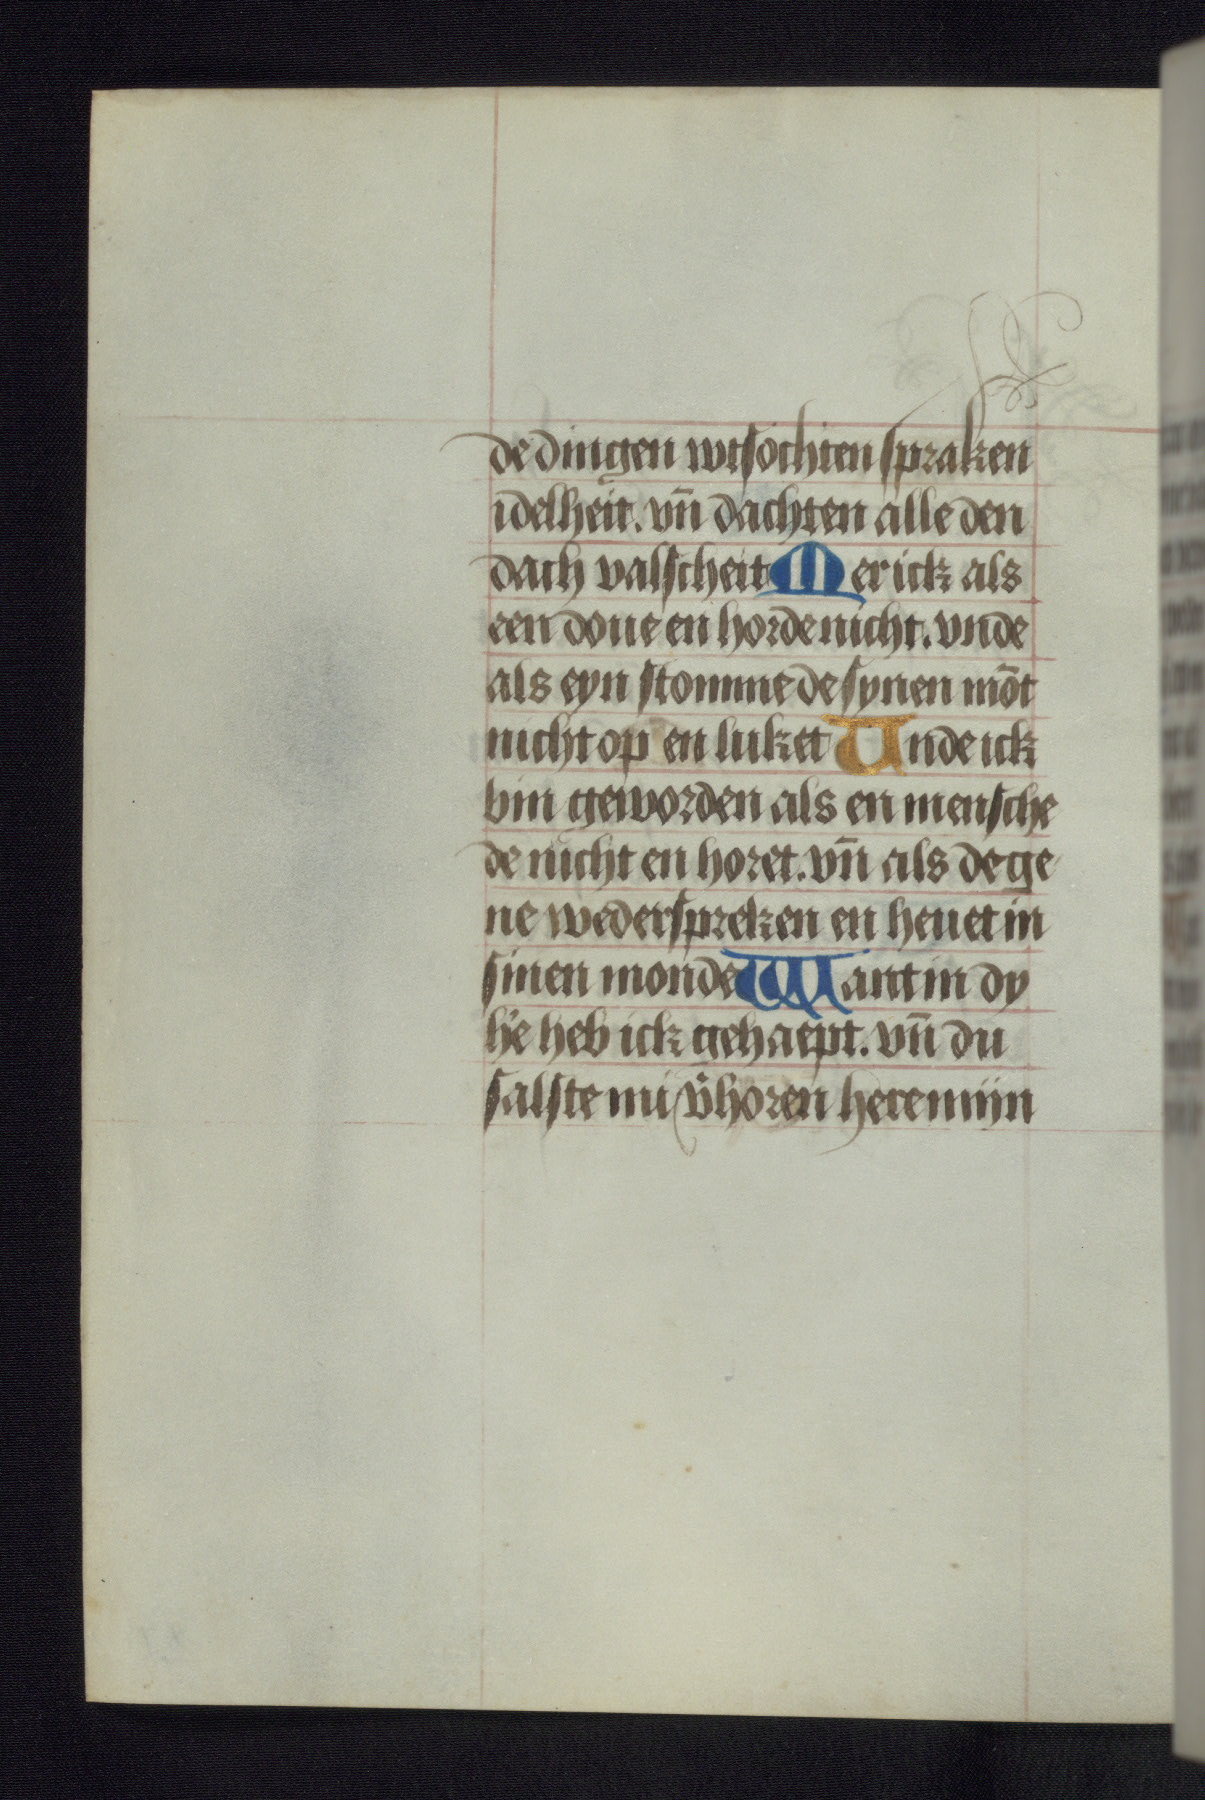 de dingen wtsochten spraken
idelheit. vn̄ dachten alle den
dach valscheit Mer ick als
een doue en horde nicht. vnde
als eyn stomme de synen mōt
nicht op en luket Vnde ick
bin geworden als en mensche
de nicht en horet. vn̄ als de ge
ne wederspreken en heuet in
sinen monde Want in dy
h'e heb ick gehaept. vn̄ du
salste mi v̄horen here mijn